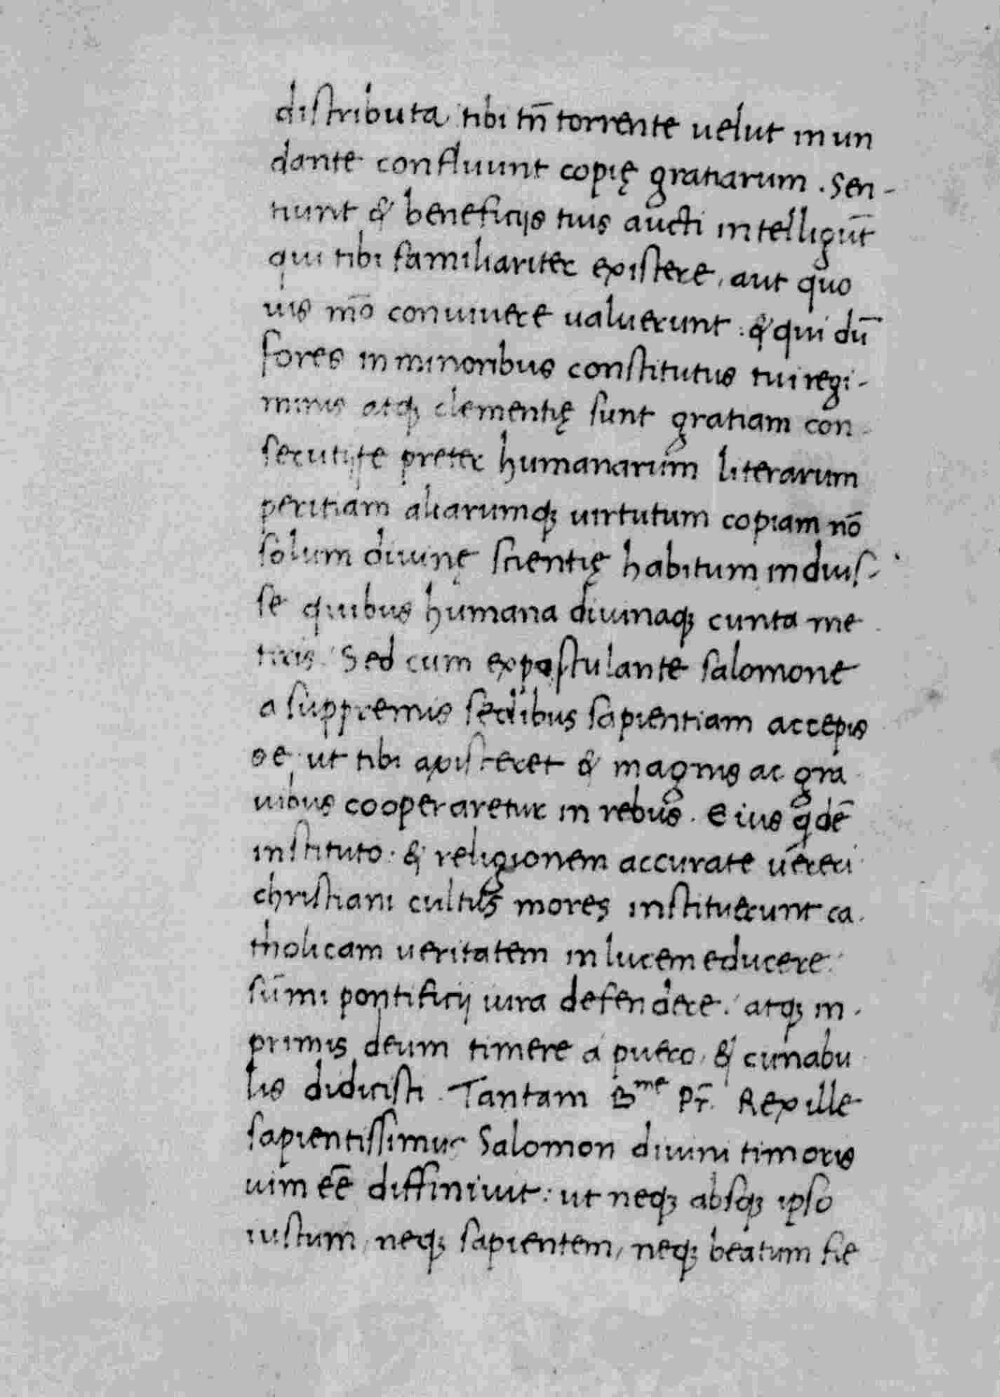 distributa tibi tñ torrente uelut in un
dante confluunt copię gratiarum . Sen-
tiunt & beneficijs tuis aucti intelligūt
qui tibi familiariter existere, aut quo
uis mõ conuiuere ualuerunt : & qui dū
fores in minoribus constitutus tui regi-
minis atq; clementię sunt gratiam con-
secuti, te preter humanarum literarum
peritiam aliarumq; uirtutum copiam nō
solum diuinę scientię habitum induis-
se quibus humana diuinaq; cunta me
tiris. Sed cum expostulante salomone
a suppremis sedibus sapientiam accepis
se, ut tibi existeret & magnis ac gra
uibus cooperaretur in rebus . Eius qdē
instituto : & religionem accurate uereri
christiani cultus mores instituerunt ca-
tholicam ueritatem in lucem educere :
sūmi pontificij iura defendere : atq; in-
primis deum timere a puero, & cunabu
lis didicisti . Tantam B.me Pr̄. Rex ille
sapientissimus Salomon diuini timoris
uim eē diffiniuit : ut neq; absq; ipso
iustum, neq; sapientem, neq; beatum fie